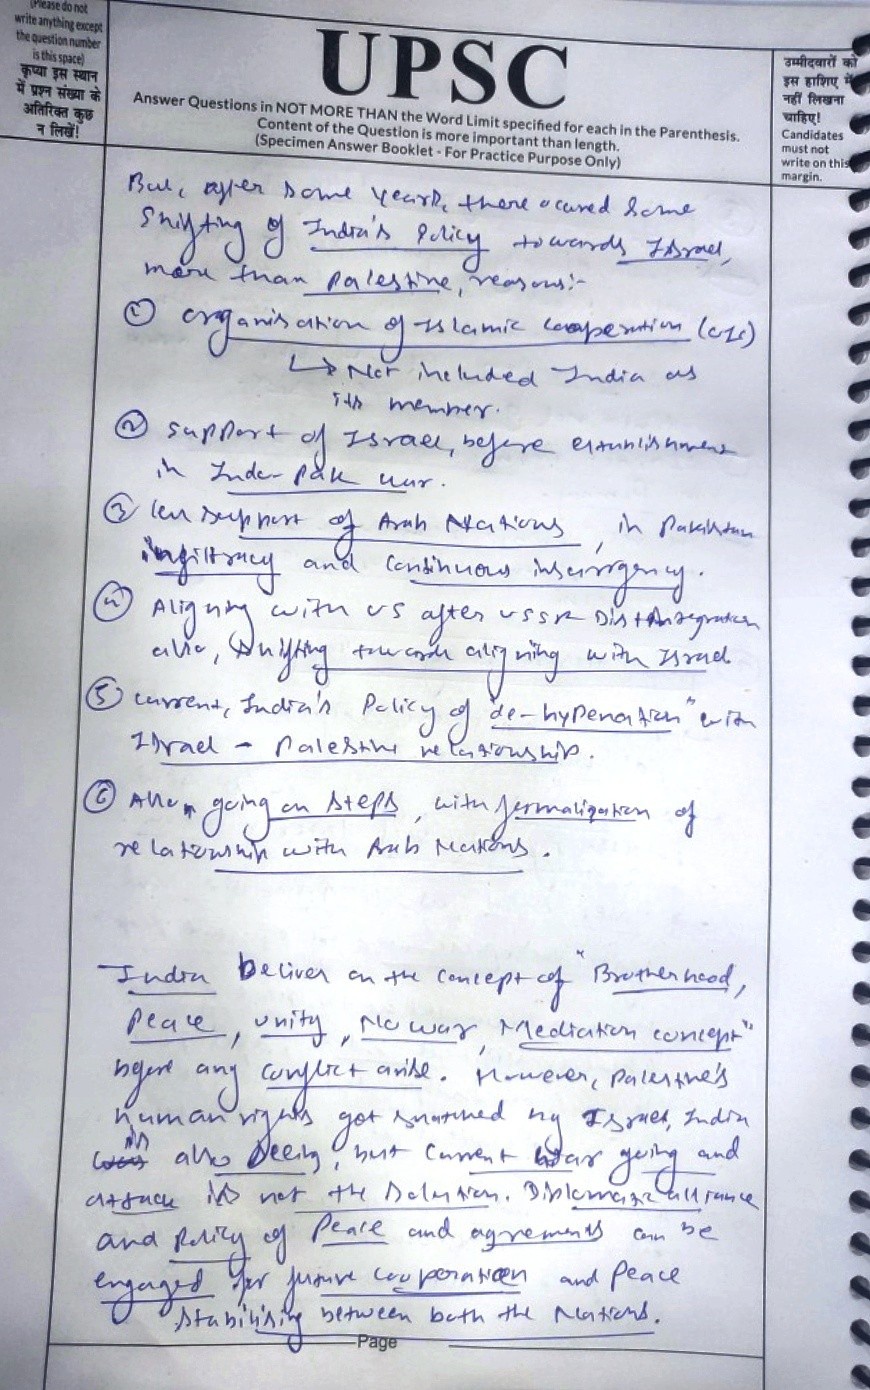 (Please do not
write anything except
the question number
is this space)
कृप्या इस स्थान
में प्रश्न संख्या के
अतिरिक्त कुछ
न लिखें!
UPSC
Answer Questions in NOT MORE THAN the Word Limit specified for each in the Parenthesis.
Content of the Question is more important than length.
(Specimen Answer Booklet - For Practice Purpose Only)
उम्मीदवारों को
इस हाशिए में
नहीं लिखना
चाहिए!
Candidates
must not
write on this
margin.
But, after some years, there occured some
shifting of India's policy towards Israel,
more than Palestine, reasons:-
① Organisation of Islamic Cooperation (OIC)
↳ Not included India as
its member.
② Support of Israel, before establishment
in Indo-Pak war.
③ less support of Arab Nations, in Pakistan
infiltracy and continuous insurrgency.
④ Aligning with US after USSR Disintegration
also, shifting towards aligning with Israel
⑤ Current, India's Policy of "de-hypenation" with
Israel - Palestine relationship.
⑥ Also, going on steps, with formalization of
relationship with Arab Nations.
India beliver on the concept of "Brotherhood,
Peace, unity, No war, Mediation concept"
before any conflict arise. However, Palestine's
human rights got snatched by Israel, India
is also seeing, but current war going and
attack is not the solution. Diplomatic alliance
and Policy of Peace and agreements can be
engaged for future cooperation and Peace
stabilising between both the Nations.
Page